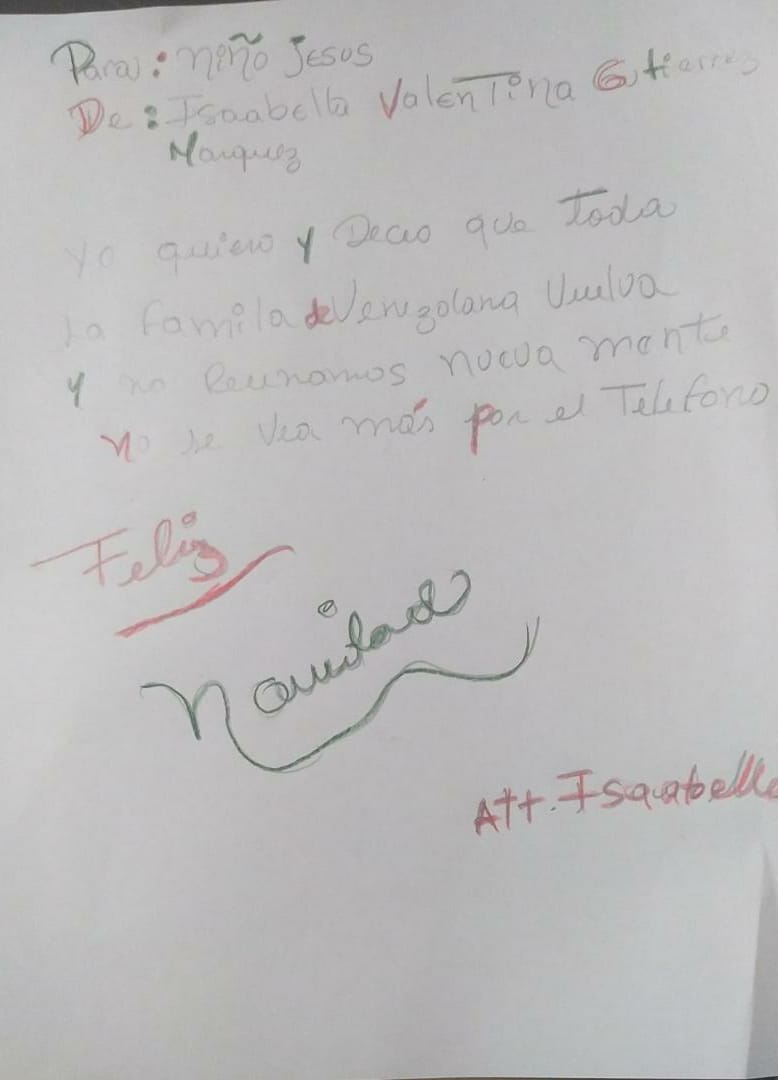 Para: niño Jesus
De: Isaabella Valentina Gutierrez
Marquez
yo quiero y Deceo que toda
La familia de Venezolana Vuelva
y no Reunamos nueva mente
no se vea más por el Teléfono
Feliz
Navidad
Att. Isaabella